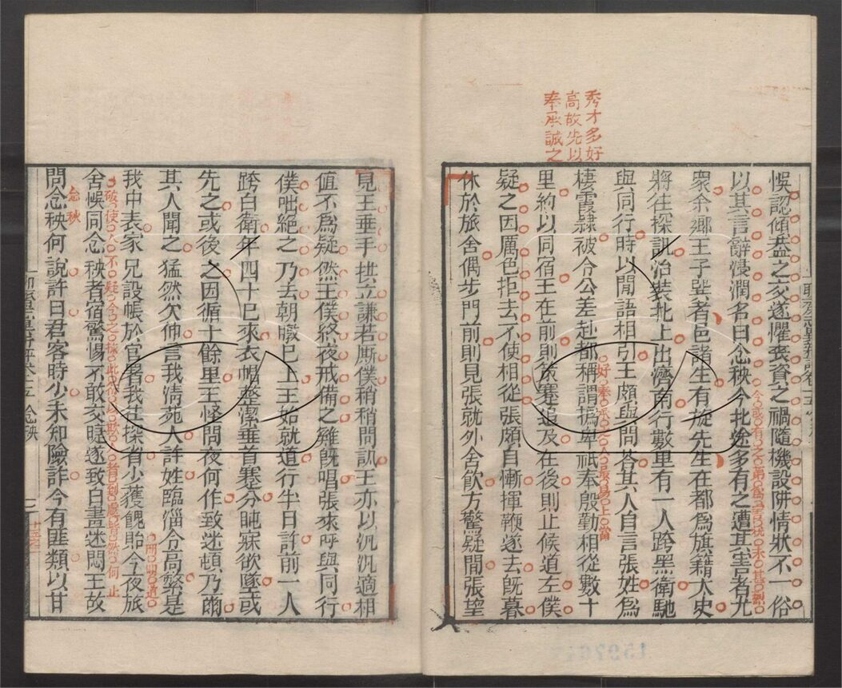 秀才多好
高故先以
奉承誠之
悞認傾葢之交遂懼喪資之禍隨機設阱情狀不一俗
以其言辭浸潤名曰念秧今北途多有之遭其害者尤
衆余鄉王子巽者邑諸生有族先生在都爲旗籍太史
將往探訊治裝北上出濟南行數里有一人跨黑衛馳
與同行時以閒語相引王頗與問答其人自言張姓爲
棲霞隸被令公差赴都稱謂撝卑祗奉殷勤相從數十
里約以同宿王在前則策蹇追及在後則止候道左僕
疑之因厲色拒去不使相從張頗自慚揮鞭遂去旣暮
休於旅舍偶步門前則見張就外舍飲方驚疑間張望
見王垂手拱立謙若厮僕稍稍問訊王亦以汎汎適相
值不爲疑然王僕終夜戒備之雞旣唱張來呼與同行
僕咄絕之乃去朝暾已上王始就道行半日許前一人
跨白衛年四十已來衣帽整潔垂首蹇分盹寐欲墮或
先之或後之因循十餘里王怪問夜何作致迷頓乃爾
其人聞之猛然欠伸言我淸苑人許姓臨淄令高檠是
我中表家兄設帳於官署我往探省少獲餽貽今夜旅
舍悞同念秧者宿驚惕不敢交睫遂致白晝迷悶王故
問念秧何說許曰君客時少未知險詐今有匪類以甘
念秧